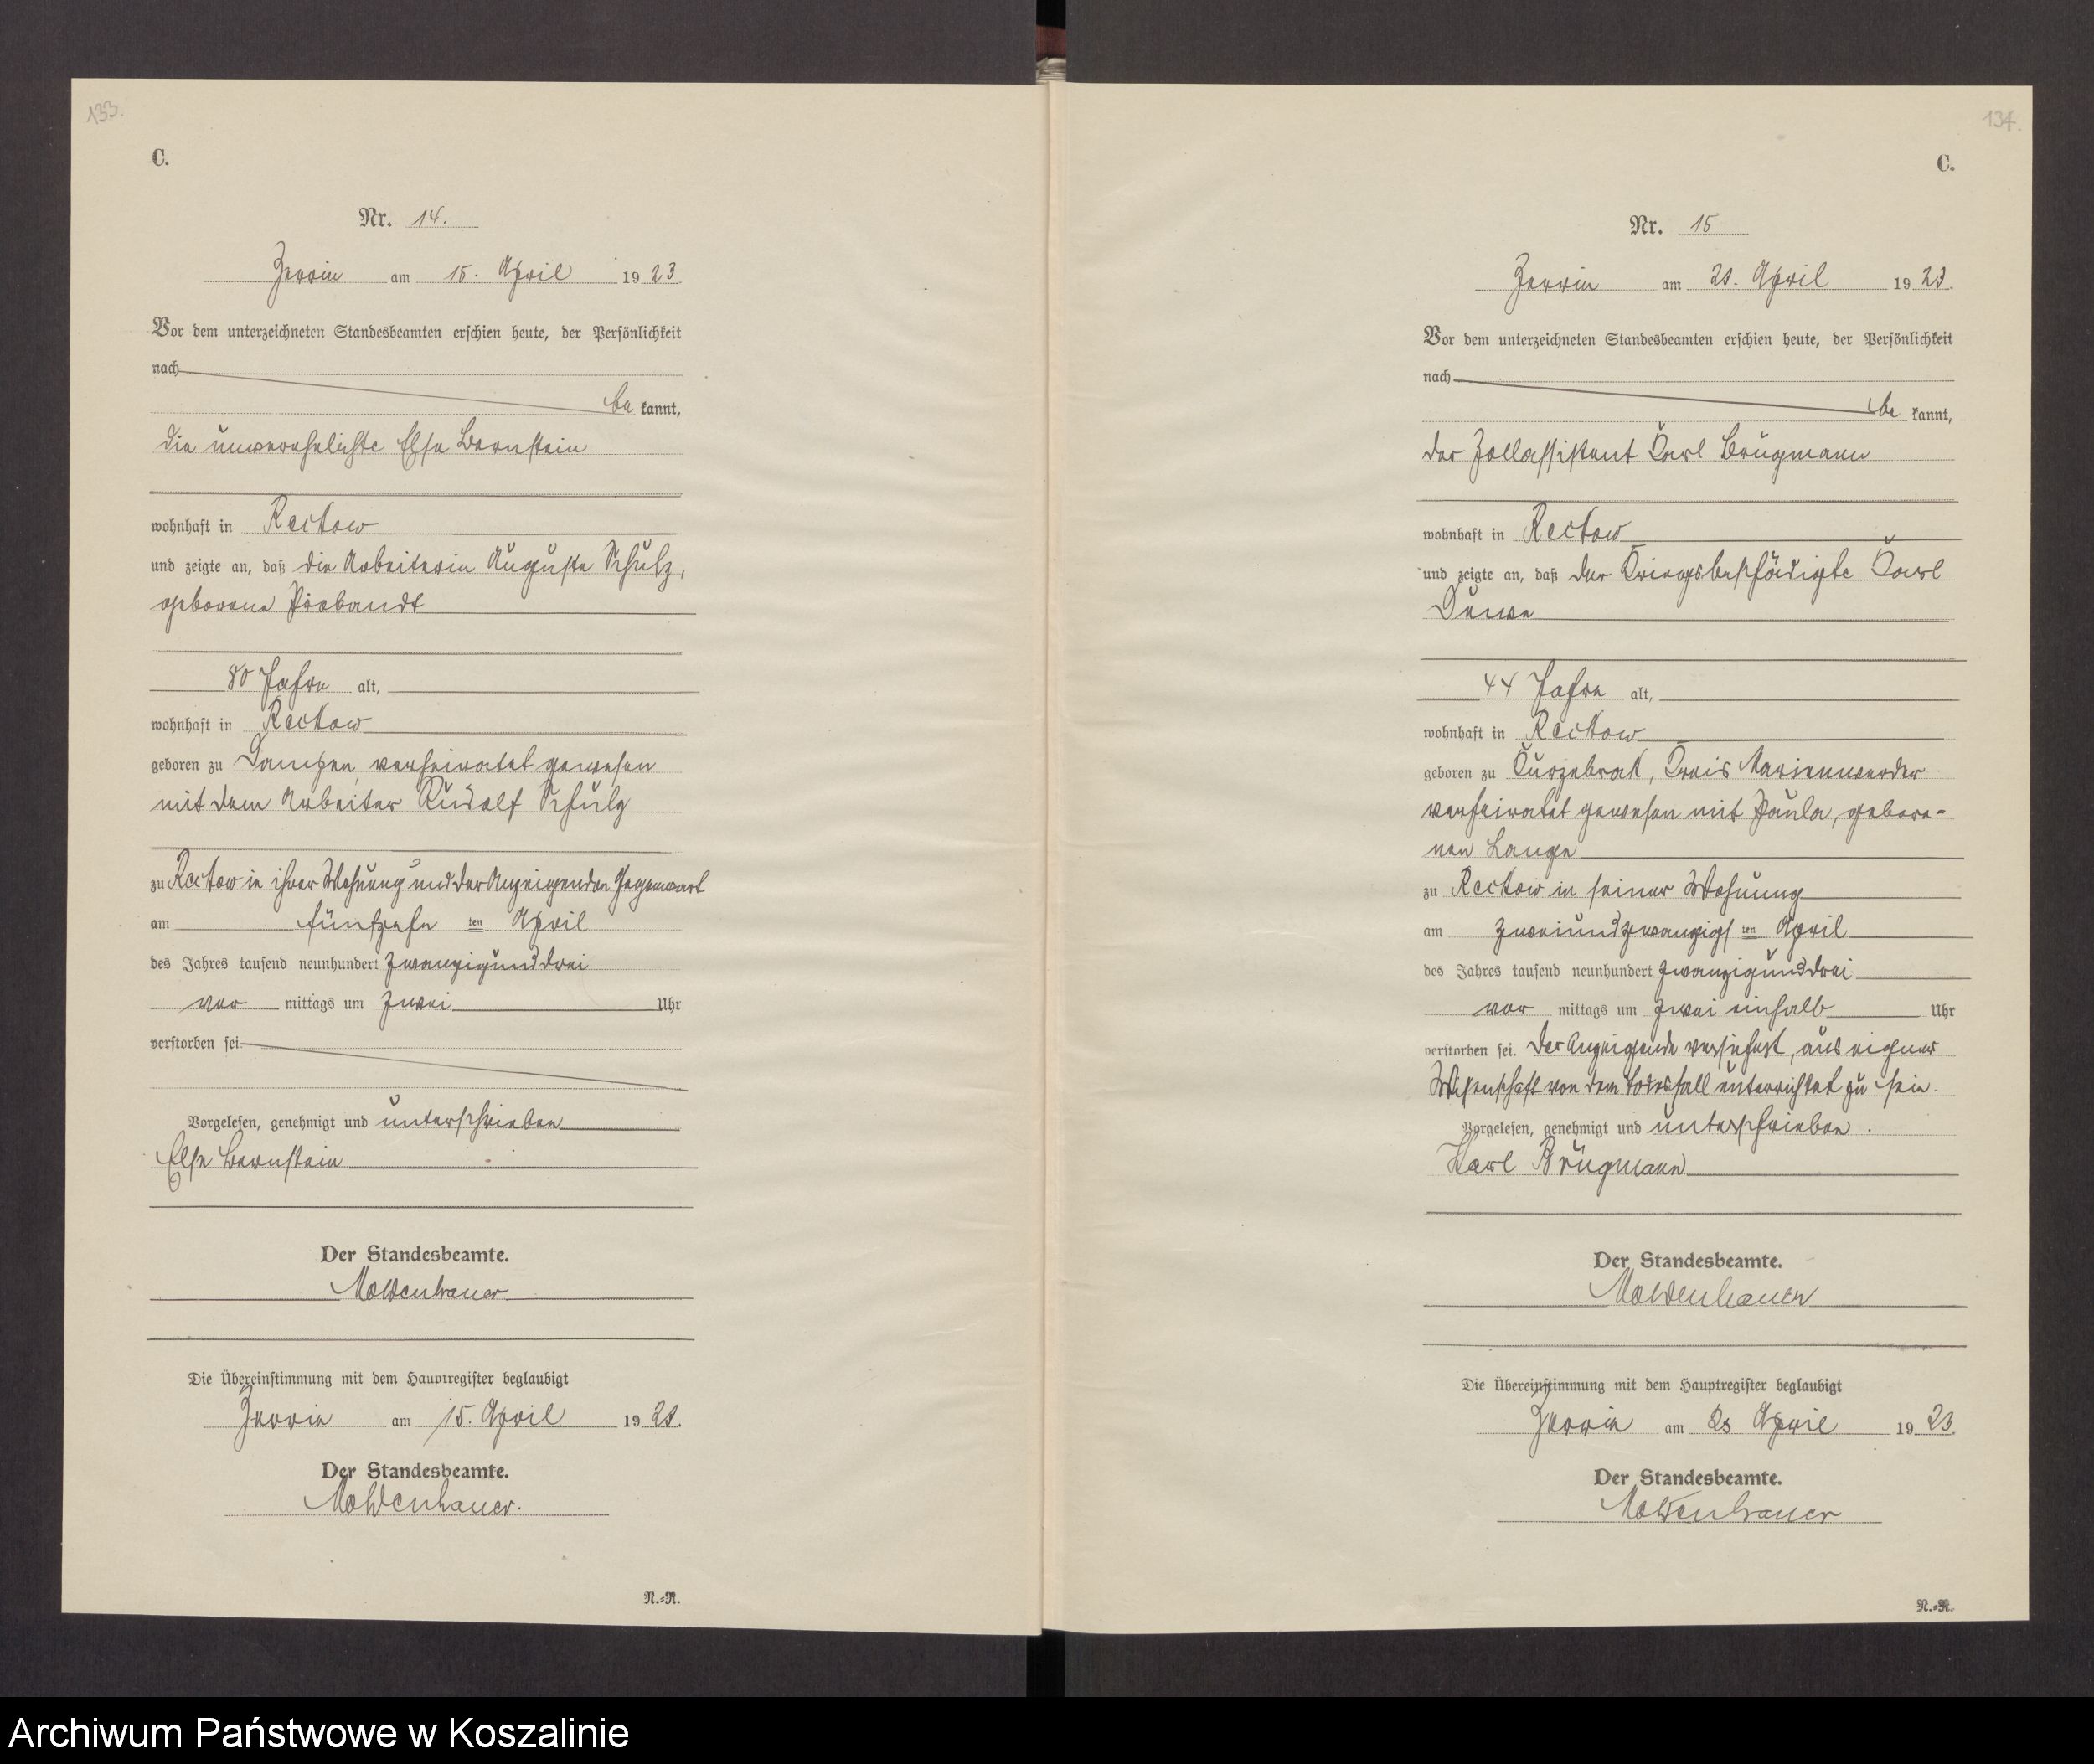 133.
C.
Nr. 14.
Zerrin am 15. April 1923
Vor dem unterzeichneten Standesbeamten erschien heute, der Persönlichkeit
nach
be kannt,
die unverehelichte Else Bernstein
wohnhaft in Reckow
und zeigte an, daß die Arbeiterin Auguste Schulz,
geborene Priebandt
80 Jahre alt,
wohnhaft in Reckow
geboren zu verheiratet gewesen
mit dem Arbeiter Rudolf Schulz
zu Reckow in ihrer Wohnung und der Anzeigenden Gegenwart
am fünfzehn ten April
des Jahres tausend neunhundert zwanzigunddrei
vor mittags um zwei Uhr
verstorben sei
Vorgelesen, genehmigt und unterschrieben
Else Bernstein
Der Standesbeamte.
Moldenhauer
Die Übereinstimmung mit dem Hauptregister beglaubigt
Zerrin am 15. April 1923.
Der Standesbeamte.
Moldenhauer.
N.=R.
134.
C.
Nr. 15
Zerrin am 23. April 1923.
Vor dem unterzeichneten Standesbeamten erschien heute, der Persönlichkeit
nach
be kannt,
der Zollassistent Karl Brügmann
wohnhaft in Reckow
und zeigte an, daß der Kriegsbeschädigte Karl
44 Jahre alt,
wohnhaft in Reckow
geboren zu Kurzebrack, Kreis Marienwerder
verheiratet gewesen mit Paula, gebore-
nen Lange
zu Reckow in seiner Wohnung
am zweiundzwanzigs ten April
des Jahres tausend neunhundert zwanzigunddrei
vor mittags um zwei einhalb Uhr
verstorben sei. Der Anzeigende versichert, aus eigner
Wissenschaft von dem Todesfall unterrichtet zu sein.
Vorgelesen, genehmigt und unterschrieben.
Karl Brügmann
Der Standesbeamte.
Moldenhauer
Die Übereinstimmung mit dem Hauptregister beglaubigt
Zerrin am 23 April 1923.
Der Standesbeamte.
Moldenhauer
N.=R.
Archiwum Państwowe w Koszalinie